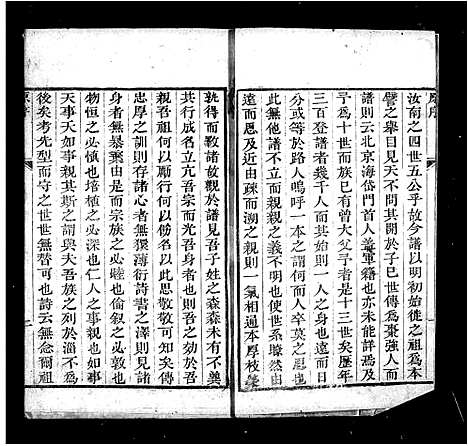 原序
汝南之四世五公乎故今譜以明初始徙之祖為本
譬之舉目見天不問其開於子巳世傳為棗強人而
譜則云北京海岱門首人善軍籍也亦未能詳焉溯
予為十世而族巳有曾大父予者是十三世矣歷年
三百登譜者幾千人而其始則一人其終則一人之
分或等於路人嗚呼一本之謂何而人卒莫之思也
此無他譜不立而親親之義不明也使世系瞭然由
遠而思及近由疎而溯之親則一氣相通本厚枝榮
孰得而斁諸故觀於譜見吾子姓之森森未有不冀
共行成名立亢吾宗而光吾身者也由吾身而溯吾
親吾祖何以勵行何以勝名以此思敬敬可知矣傳
忠厚之訓則存諸心者無獧薄衍詩書之澤則見諸
身者無暴棄由是而宗族之必睦也倫叙之必敦也
物恒之必慎也培植之必深也仁人之事親也如事
天事天如事親其斯之謂與天吾族於淄不為
後矣考先型而守之世世無替可也詩云無念爾祖
原序
二